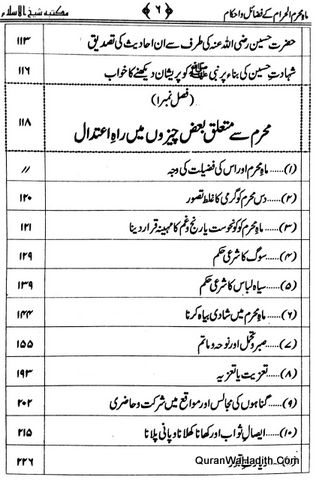 ماہِ محرم الحرام کے فضائل و احکام ﴿ ۶ ﴾ مکتبہ شیخ الاسلام
حضرت حسین رضی اللہ عنہ کی طرف سے ان احادیث کی تصدیق ۱۱۳
شہادتِ حسین کی بناء پر نبی ﷺ کو پریشان دیکھنے کا خواب ۱۱۶
(فصل نمبر ۱)
محرم سے متعلق بعض چیزوں میں راہِ اعتدال ۱۱۸
(۱)..... ماہِ محرم اور اس کی فضیلت کی وجہ //
(۲)..... دس محرم کو گرمی کا غلط تصور ۱۲۰
(۳)..... ماہِ محرم کو نحوست یا رنج و غم کا مہینہ قرار دینا ۱۲۱
(۴)..... سوگ کا شرعی حکم ۱۲۹
(۵)..... سیاہ لباس کا شرعی حکم ۱۳۹
(۶)..... ماہِ محرم میں شادی بیاہ کرنا ۱۴۴
(۷)..... صبر و تحمل اور نوحہ و ماتم ۱۵۵
(۸)..... تعزیت یا تعزیہ ۱۹۳
(۹)..... گناہوں کی مجالس اور مواقع میں شرکت و حاضری ۲۰۲
(۱۰)..... ایصالِ ثواب اور کھانا کھلانا و پانی پلانا ۲۱۵
۲۲۶
QuranWaHadith.Com